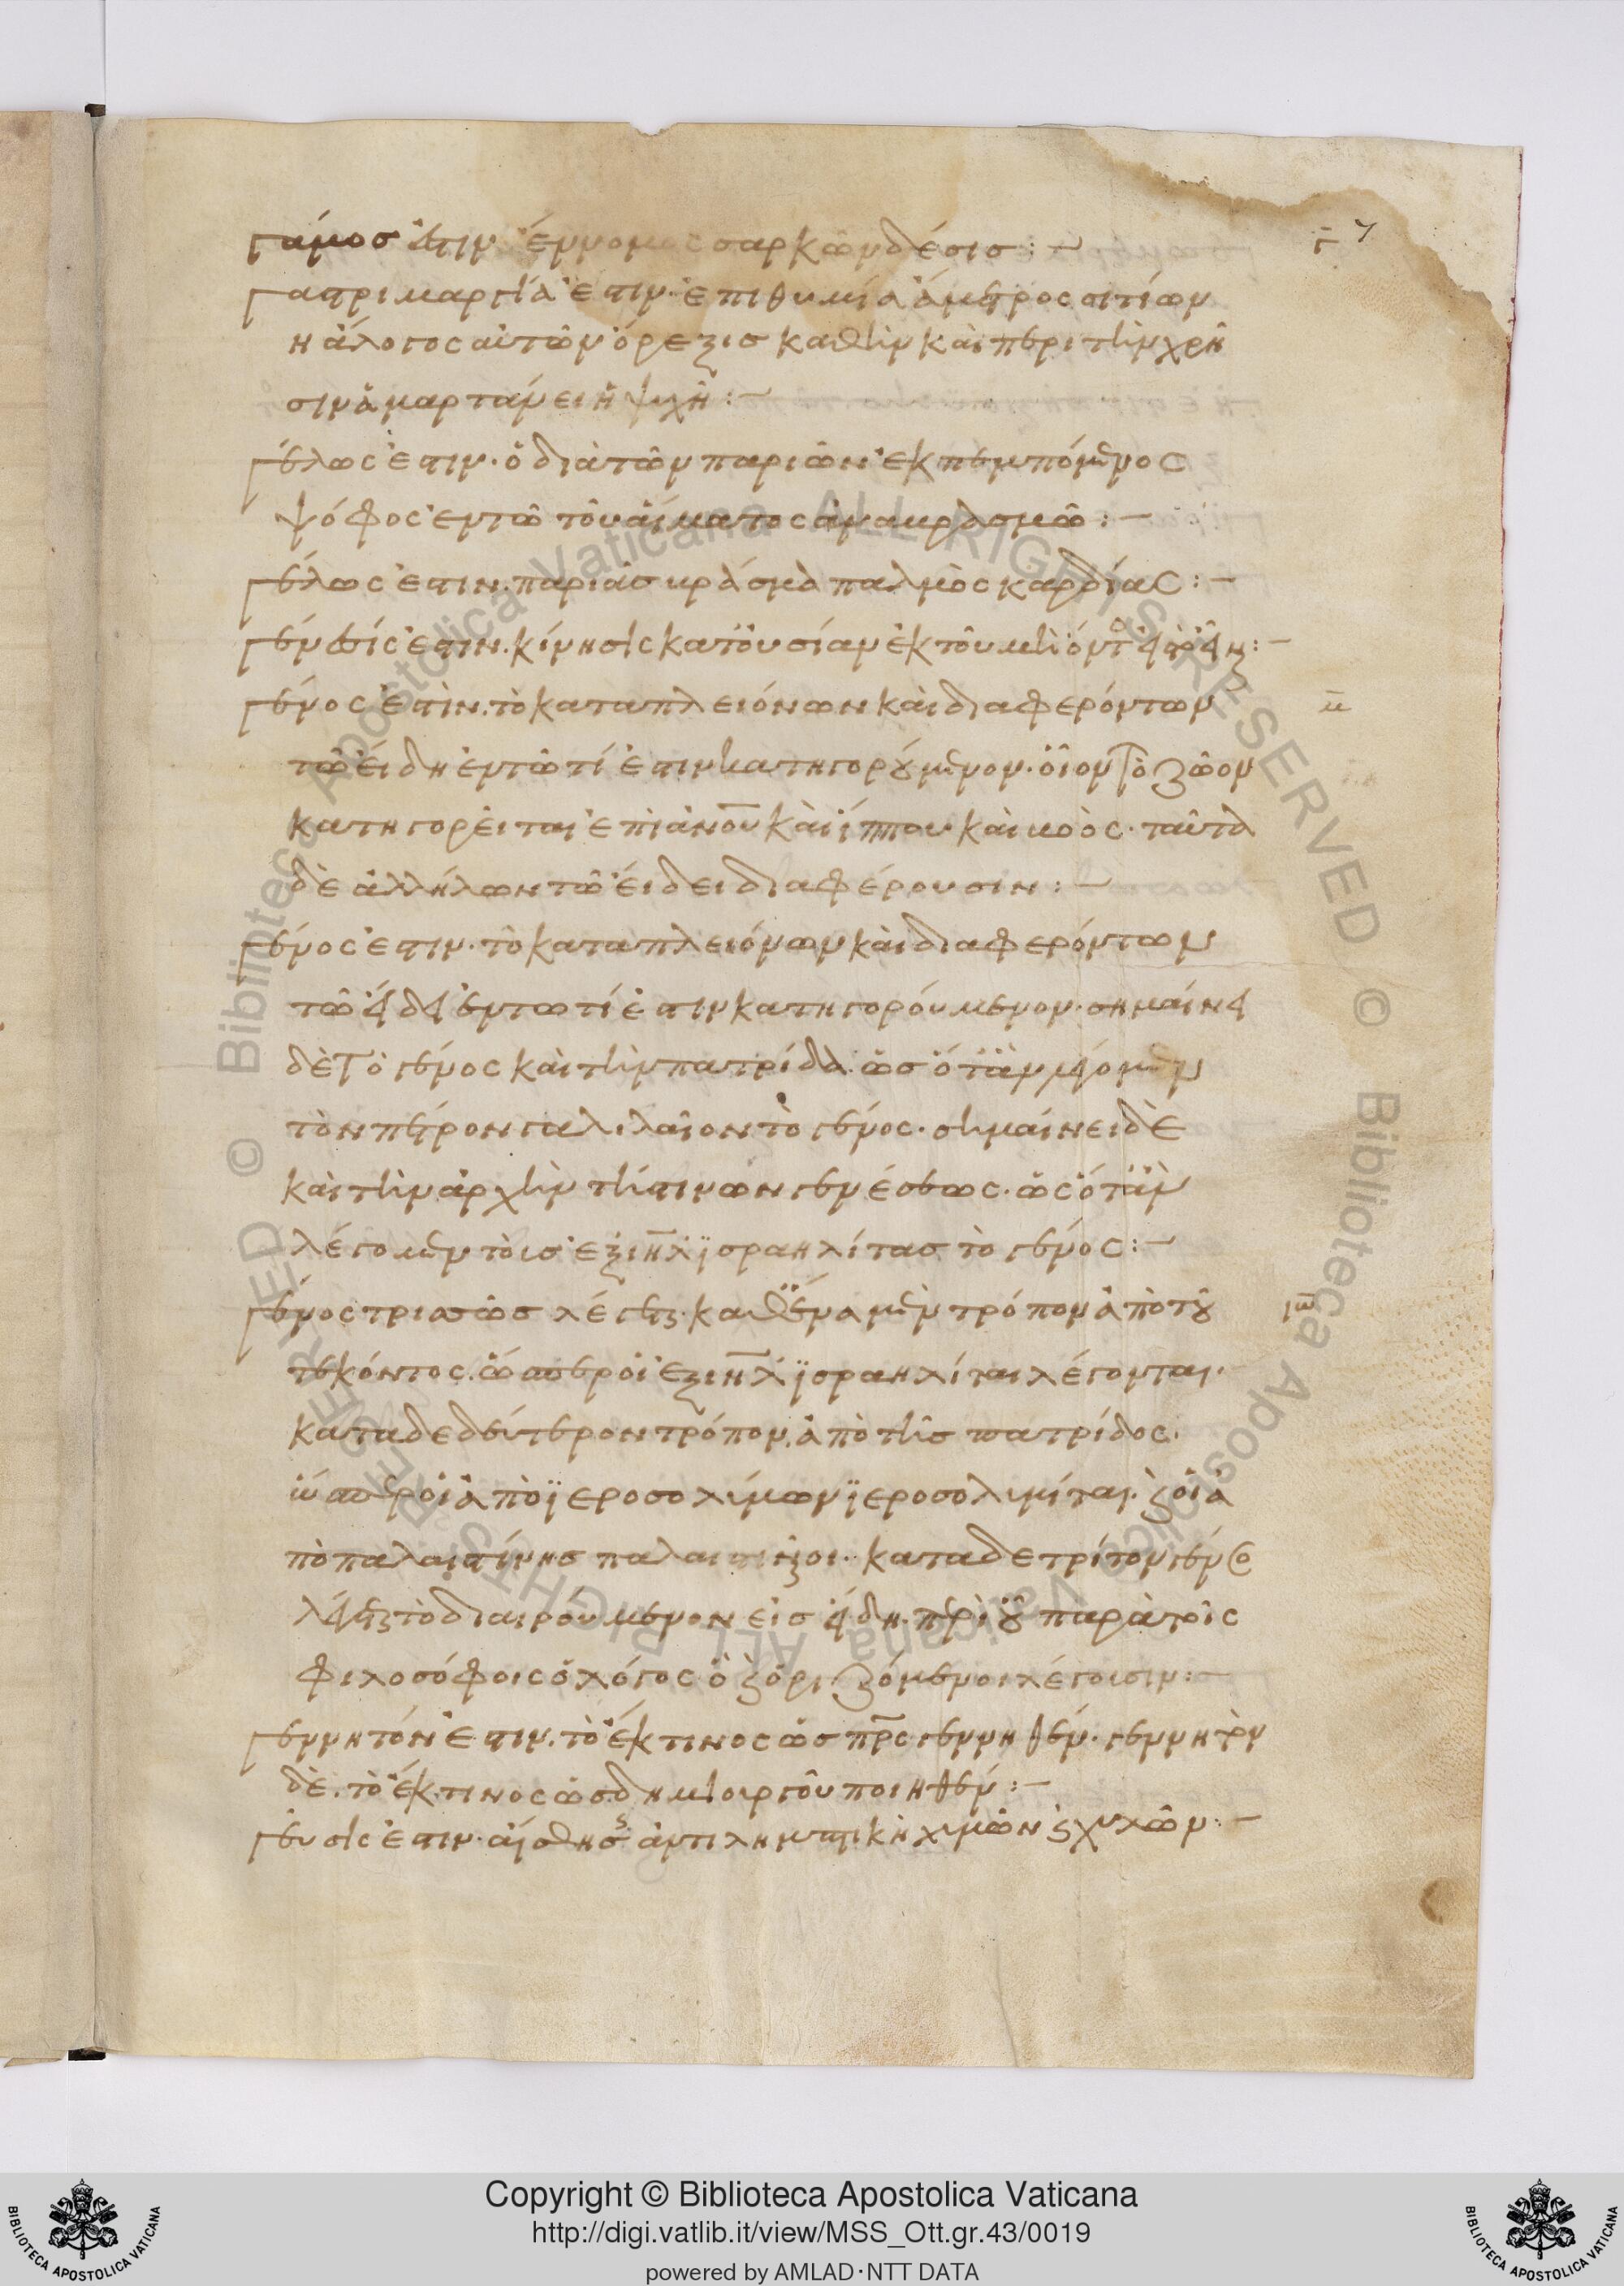 γάμος ἐστὶν ἔννομος σαρκῶν δέσις :~
γαστριμαργία ἐστιν· ἐπιθυμία ἄμετρος σιτίων
ἢ ἄλογος αὐτῶν ὄρεξις καθ' ἣν καὶ περὶ τὴν χρῆ
σιν ἁμαρτάνει ἡ ψυχή :~
γέλως ἐστιν· ὁ διὰ τῶν παριῶν ἐκπεμπόμενος
ψόφος ἐν τῶ τοῦ αἵματος ἀνακρασμῶ :~
γέλως ἐστιν· παριᾶς κράσμα παλμὸς καρδίας :~
γένεσίς ἐστιν. κίνησις κατ' οὐσίαν ἐκ τοῦ μὴ ὄντος
γένος ἐστὶν. τὸ κατα πλειόνων καὶ διαφερόντων
τῶ εἴδη ἐν τῶ τί ἐστιν κατηγορούμενον. οἷον τὸ ζῶον
κατηγορεῖται ἐπὶ ἀνου καὶ ἵππου καὶ βοός· ταῦτα
δὲ ἀλλήλων τῶ εἴδει διαφέρουσιν :~
γένος ἐστιν· τὸ κατα πλειόνων καὶ διαφερόντων
τῶ εἴδει ἐν τω τί ἐστιν κατηγορούμενον. σημαίνει
δὲ τὸ γένος καὶ τὴν πατρίδα. ὡς ὅτἂν λέγομεν
τὸν πέτρον γαλιλαῖον τὸ γένος. σημαίνει δὲ
καὶ τὴν ἀρχὴν τῆς τινων γενέσεως. ὡς ὅτἂν
λέγομεν τοὺς ἐξ ιηλ ϊσραηλίτας τὸ γένος :~
γένος τρισσῶς λέγεται. καθ' ἕνα μὲν τρόπον ἀπὸ τοῦ
τεκόντος. ὥσπερ οἱ ἐξ ιηλ ϊσραηλίται λέγονται.
κατα δε δεύτερον τρόπον. ἀπὸ τῆς πατρίδος.
ὥσπερ οἱ ἀπὸ ϊεροσολύμων ϊεροσολυμίται. καὶ οἱ ἀ
πὸ παλαιστίνης παλαιστιναῖοι. κατα δε τρίτον γένος
λέγεται τὸ διαιρούμενον εἰς εἴδη. περὶ οὗ παρὰ τοῖς
φιλοσόφοις ὁ λόγος. ὃ καὶ ὁριζόμενοι λέγουσιν :~
γεννητόν ἐστιν. τὸ ἔκ τινος ὡς πρς γεννηθέν. γεννητὸν
δὲ. τὸ ἔκ τινος ὡς δημιουργοῦ ποιηθέν :~
γεῦσίς ἐστιν. αἴσθησις ἀντιληπτικὴ χυμῶν καὶ χυλῶν :~